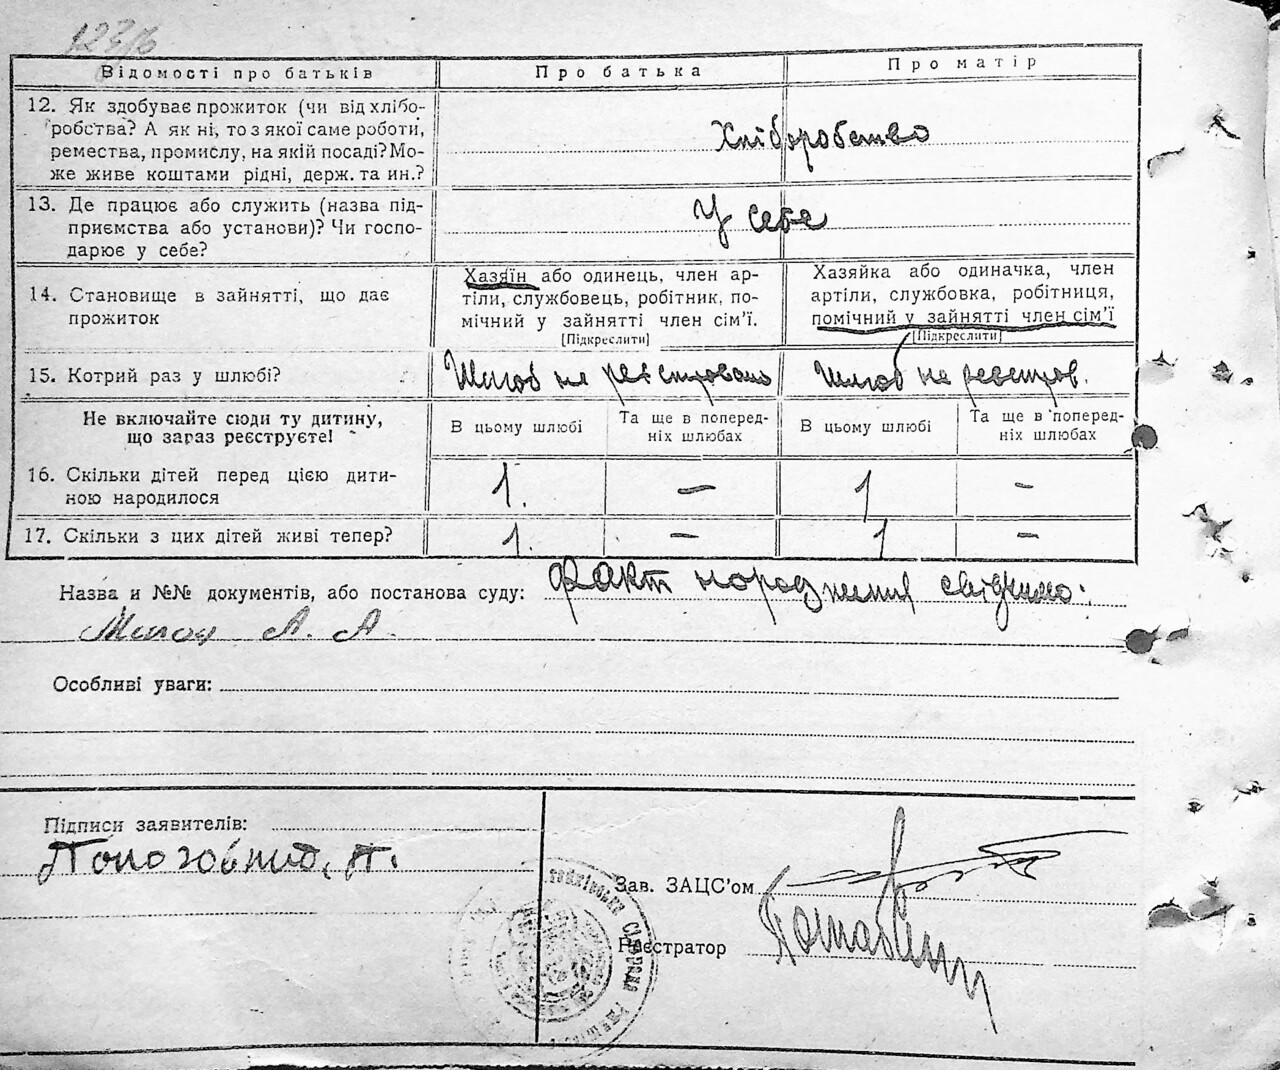 123/6
Відомості про батьків
Про батька
Про матір
12. Як здобуває прожиток (чи від хлібо-
робства? А як ні, то з якої саме роботи,
ремества, промислу, на якій посаді? Мо-
же живе коштами рідні, держ. та ин.?
Хліборобство
13. Де працює або служить (назва під-
приємства або установи)? Чи госпо-
дарює у себе?
У себе
14. Становище в зайнятті, що дає
прожиток
Хазяїн або одинець, член ар-
тіли, службовець, робітник, по-
мічний у зайнятті член сім'ї.
[Підкреслити]
Хазяйка або одиначка, член
артіли, службовка, робітниця,
помічний у зайнятті член сім'ї
[Підкреслити]
15. Котрий раз у шлюбі?
Шлюб не реєстровано
Шлюб не реєстров.
Не включайте сюди ту дитину,
що зараз реєструєте!
В цьому шлюбі
Та ще в поперед-
ніх шлюбах
В цьому шлюбі
Та ще в поперед-
ніх шлюбах
16. Скільки дітей перед цією дити-
ною народилося
1. — 1 —
17. Скільки з цих дітей живі тепер?
1. — 1 —
Назва и №№ документів, або постанова суду: Факт народження свідчимо:
А. А.
Особливі уваги:
Підписи заявителів:
Зав. ЗАЦС'ом
Реєстратор